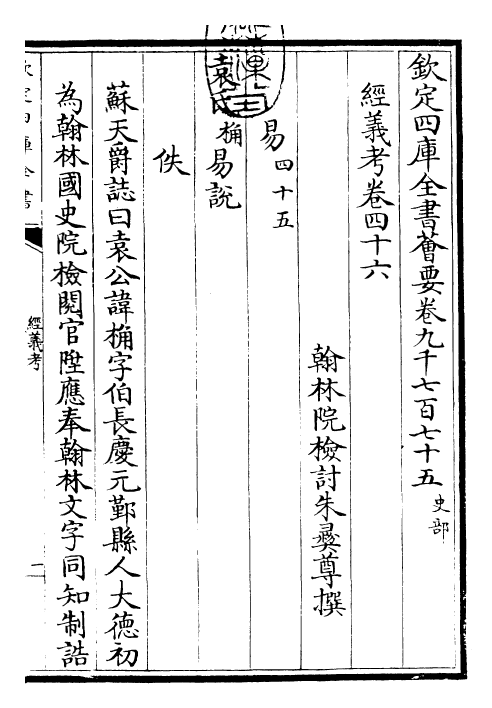 欽定四庫全書薈要卷九千七百七十五 史部
經義考卷四十六
翰林院檢討朱彝尊撰
易 四十五
袁氏桷易說
佚
蘇天爵誌曰袁公諱桷字伯長慶元鄞縣人大德初
為翰林國史院檢閱官陞應奉翰林文字同知制誥
欽定四庫全書
經義考